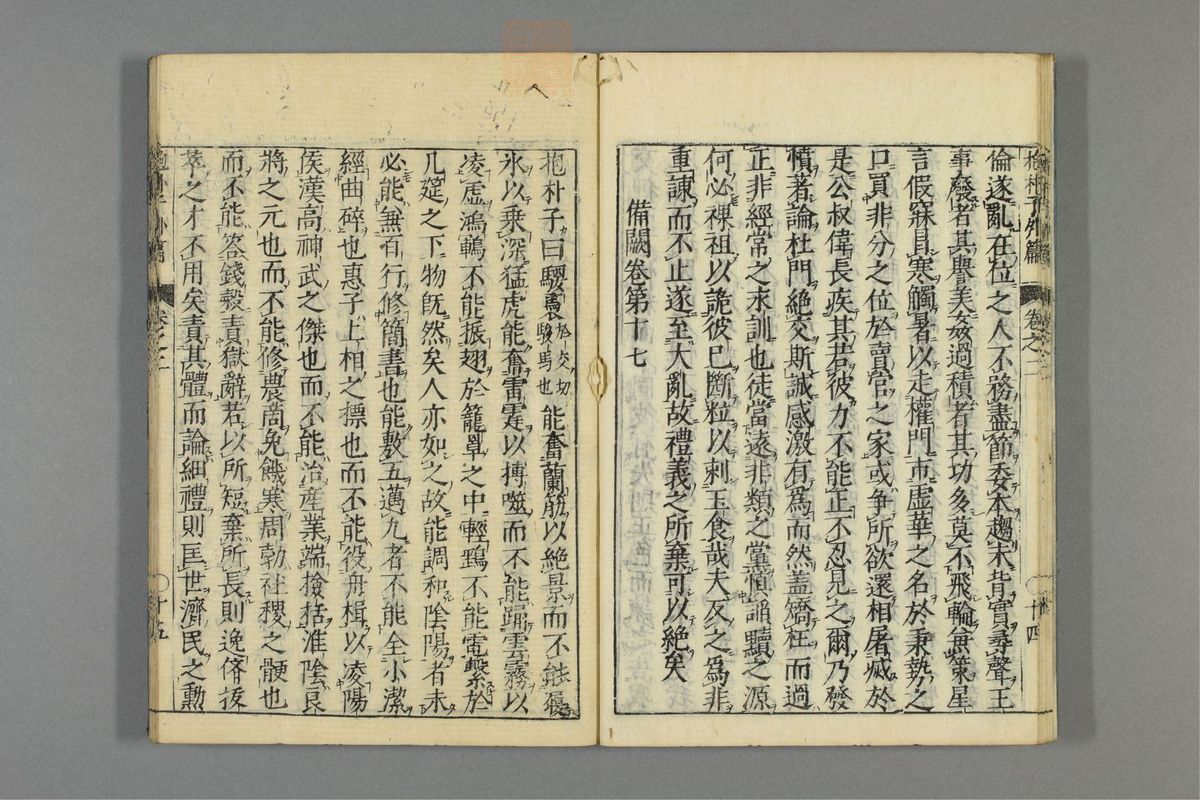 抱朴子外篇 卷之二 十四
倫遂亂在位之人不務盡節委本趨末背實尋聲王
事廢者其譽美姦過積者其功多莫不飛輪無策星
言假寐冒寒觸暑以走權門市虛華之名於秉勢之
口買非分之位於賣官之家或爭所欲還相屠滅於
是公叔偉長疾其若彼力不能正不忍見之爾乃發
憤著論杜門絶交斯誠感激有爲而然蓋矯枉而過
正非經常之永訓也徒當遠非類之黨愼諂黷之源
何必裸袒以詭彼已斷粒以刺玉食哉夫反之爲非
重諫而不止遂至大亂故禮義之所棄可以絶矣
備闕卷第十七
抱朴子曰騕褭於交切駿馬也能奮蘭筋以絶景而不能履
氷以乗深猛虎能奮雷霆以搏噬而不能踊雲霧以
凌虛鴻鶤不能振翅於籠罩之中輕鷂不能電擊於
几筵之下物既然矣人亦如之故能調和陰陽者未
必能無百行修簡書也能敷五邁九者不能全小潔
經曲碎也惠子上相之摽也而不能役舟楫以凌陽
侯漢高神武之傑也而不能治産業端撿括淮陰良
將之元也而不能修農啇免饑寒周勃社稷之骾也
而不能答錢糓責獄辭若以所短棄所長則逸儕拔
萃之才不用矣責其體而論細禮則匡世濟民之勳
抱朴子外篇 卷之二 十五